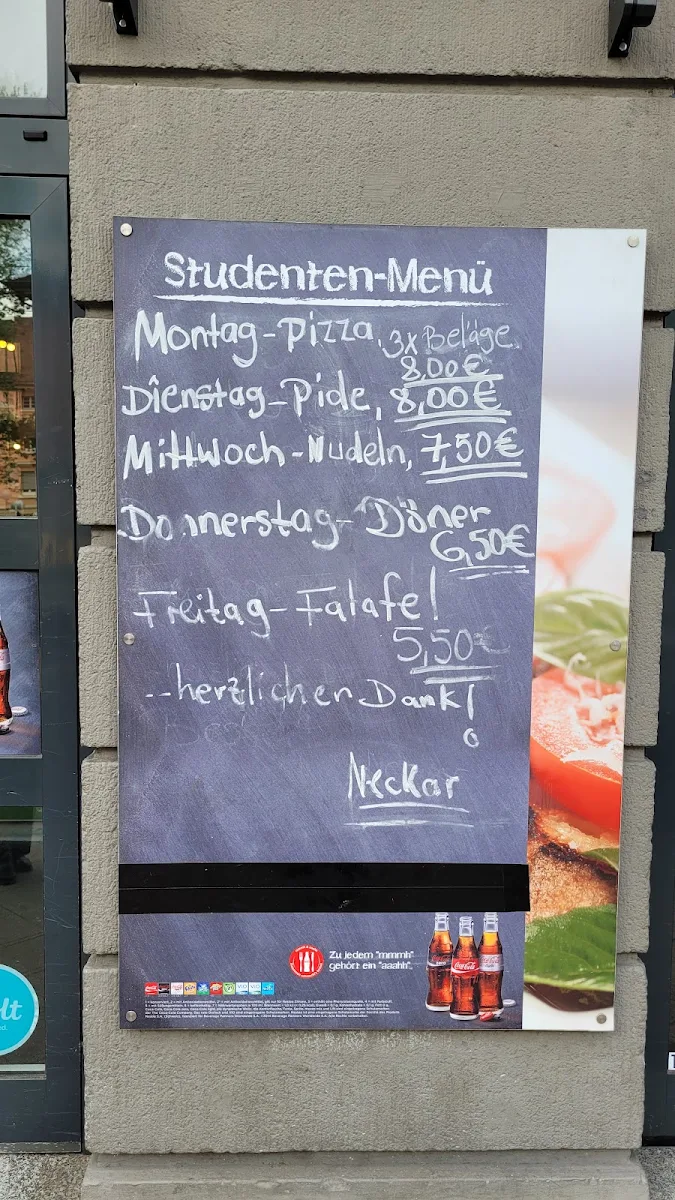 Studenten-Menü
Montag-Pizza, 3x Beläge
8,00€
Dienstag-Pide, 8,00€
Mittwoch-Nudeln, 7,50€
Donnerstag-Döner
6,50€
Freitag-Falafel
5,50€
..herzlichen Dank!
Neckar
Zu jedem "mmmh"
gehört ein "aaahh".